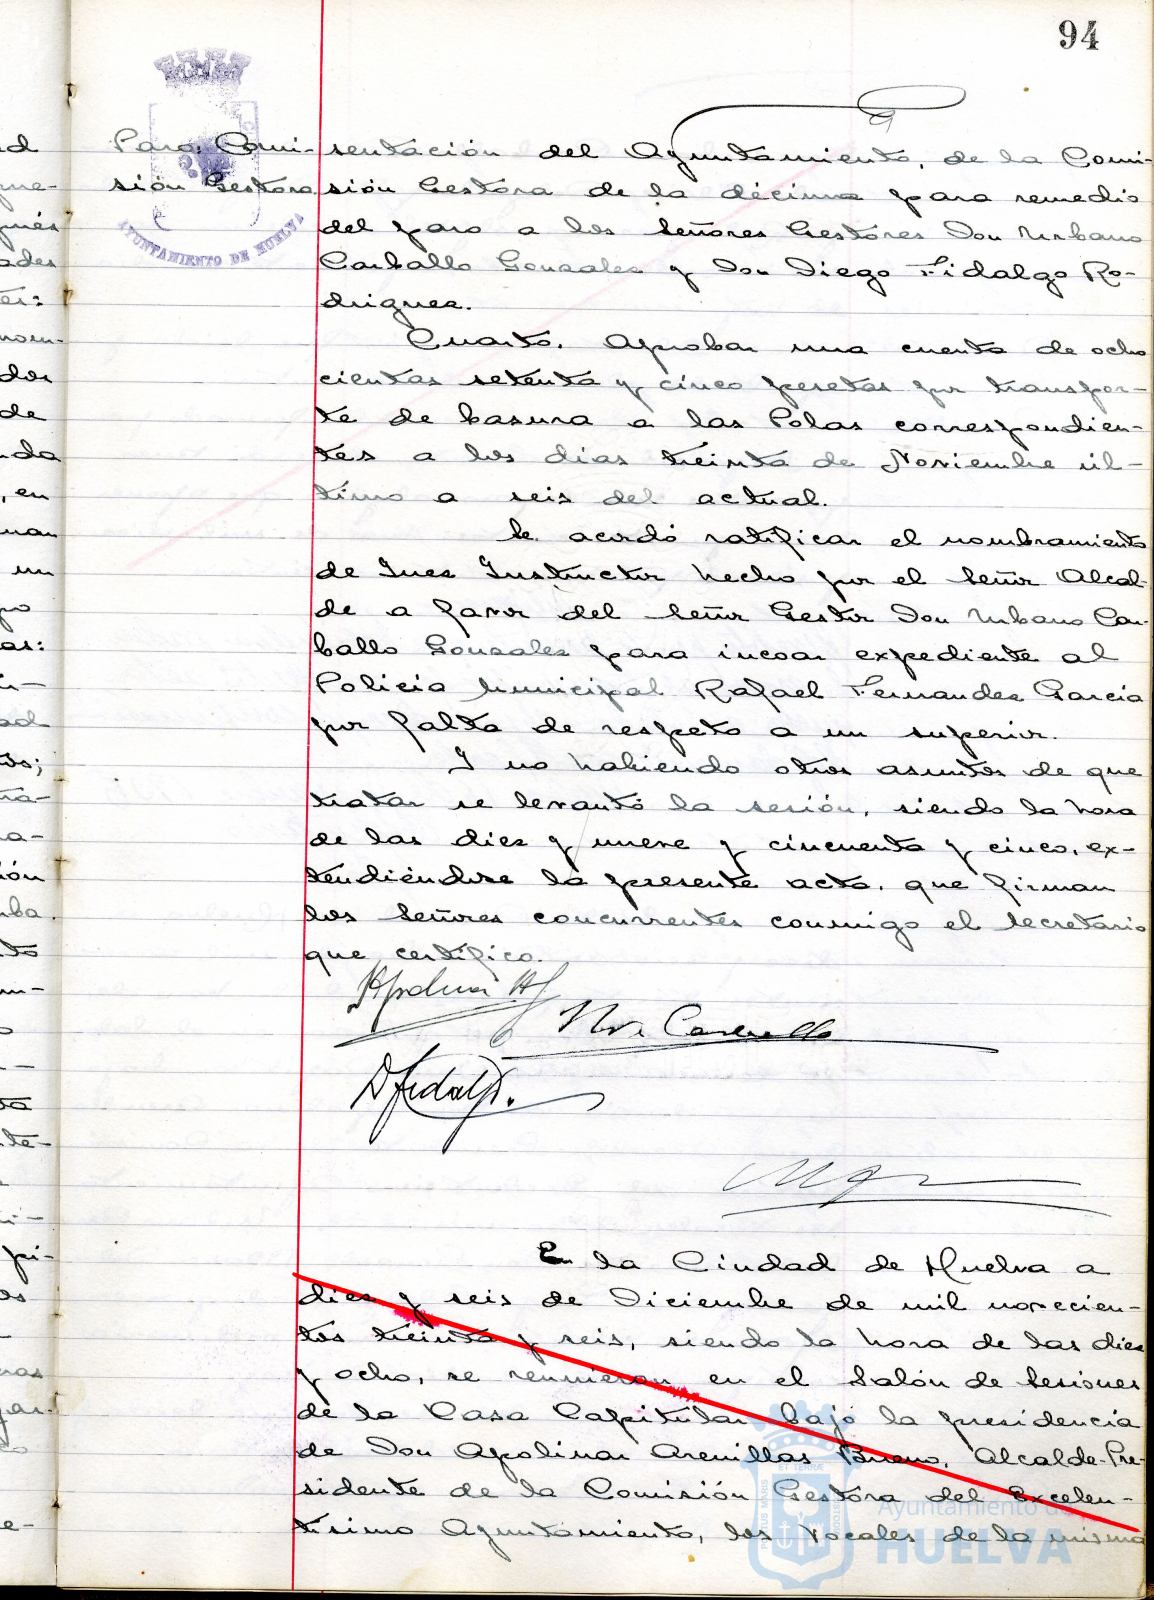 94
Paro. Comi-
sión Gestora
AYUNTAMIENTO DE HUELVA
sentación del Ayuntamiento, de la Comi-
sión Gestora de la décima para remedio
del paro a los Señores Gestores Don Urbano
Carballo Gonzalez y Don Diego Fidalgo Ro-
driguez.
Cuarto. Aprobar una cuenta de ocho
cientas setenta y cinco pesetas por transpor-
te de basura a las Polas correspondien-
tes a los dias treinta de Noviembre úl-
timo a seis del actual.
Se acordó ratificar el nombramiento
de Juez Instructor hecho por el Señor Alcal-
de a favor del Señor Gestor Don Urbano Car-
ballo Gonzalez para incoar expediente al
Policia Municipal Rafael Fernandez Garcia
por falta de respeto a un superior.
Y no habiendo otros asuntos de que
tratar se levantó la sesión, siendo la hora
de las diez y nueve y cincuenta y cinco, ex-
tendiéndose la presente acta, que firman
los Señores concurrentes conmigo el Secretario
que certifico.
D Fidalgo.
En la Ciudad de Huelva a
diez y seis de Diciembre de mil novecien-
tos treinta y seis, siendo la hora de las diez
y ocho, se reunieron en el Salón de Sesiones
de la Casa Capitular bajo la presidencia
de Don Apolinar Arenillas Bueno, Alcalde-Pre-
sidente de la Comisión Gestora del Excelen-
tisimo Ayuntamiento, los Vocales de la misma
Ayuntamiento de
HUELVA